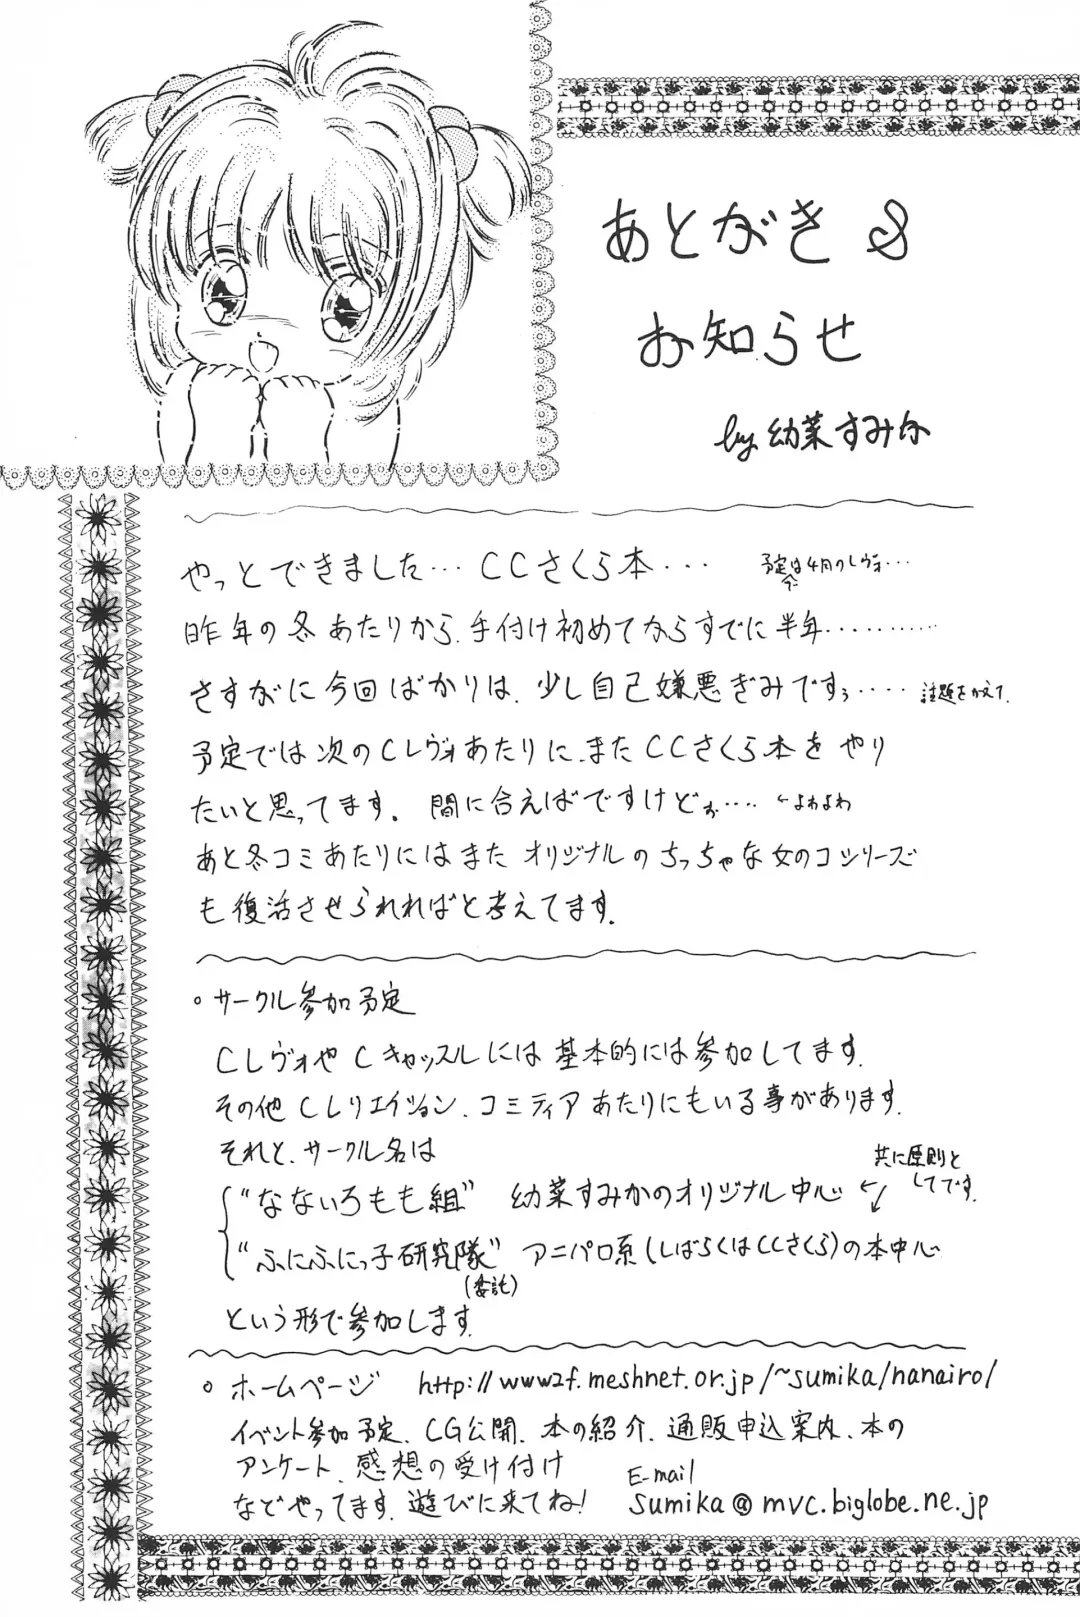 あとがき &
お知らせ
by 幼菜すみか
やっとできました… CCさくら本… 予定は4月のレヴォ…
昨年の冬あたりから、手付け初めてからすでに半年…………
さすがに今回ばかりは、少し自己嫌悪ぎみですぅ…… 話題をかえて、
予定では次のCレヴォあたりに、またCCさくら本をやり
たいと思ってます。間に合えばですけどぉ…… ←よわよわ
あと冬コミあたりにはまたオリジナルのちっちゃな女のコシリーズ
も復活させられればと考えてます。
○ サークル参加予定
CレヴォやCキャッスルには基本的には参加してます。
その他Cレリエイション、コミティアあたりにもいる事があります。
それと、サークル名は
"なないろもも組" 幼菜すみかのオリジナル中心 ← 共に原則としてです。
"ふにふにっ子研究隊" アニパロ系(しばらくはCCさくら)の本中心
(委託)
という形で参加します。
○ ホームページ http://www2f.meshnet.or.jp/~sumika/nanairo/
イベント参加予定、CG公開、本の紹介、通販申込案内、本の
アンケート、感想の受け付け
などやってます。遊びに来てね!
E-mail
sumika@mvc.biglobe.ne.jp